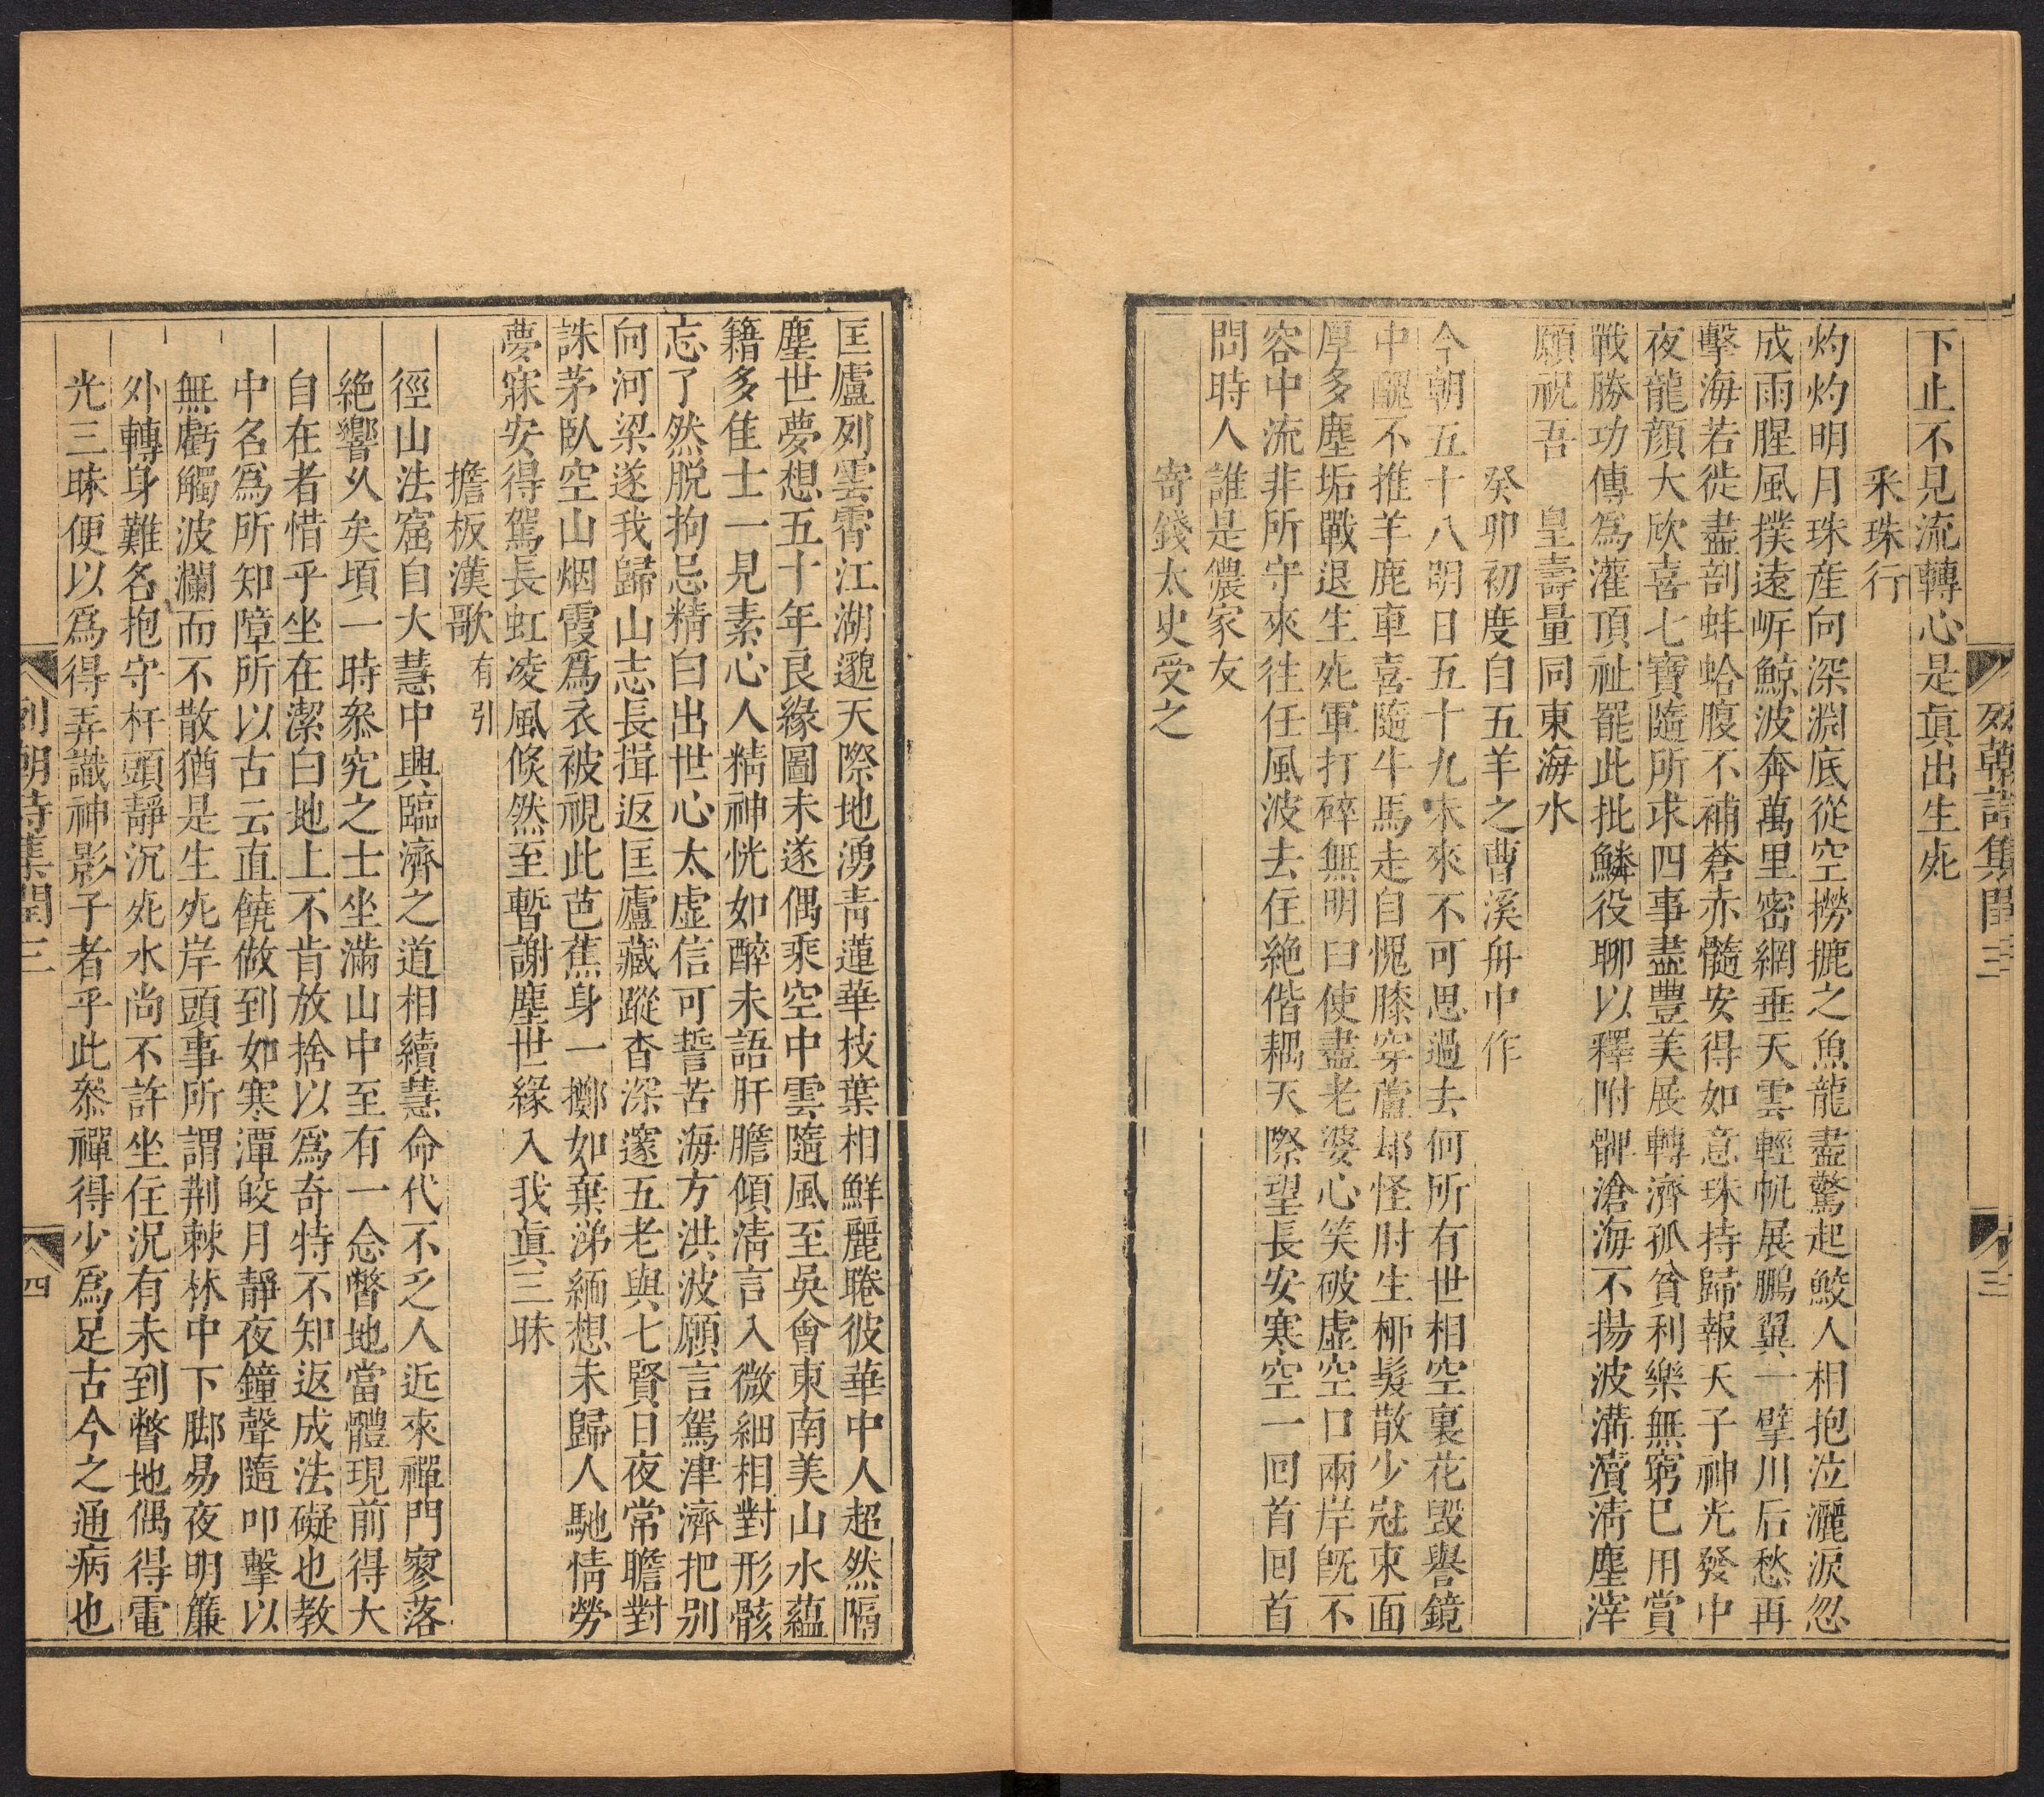 列朝詩集閏三
三
下止不見流轉心是眞出生死
采珠行
灼灼明月珠産向深淵底從空撈摝之魚龍盡驚起鮫人相抱泣灑淚忽
成雨腥風撲遠岍鯨波奔萬里密網垂天雲輕帆展鵬翼一擘川后愁再
擊海若徙盡剖蚌蛤腹不補蒼赤髓安得如意珠持歸報天子神光發中
夜龍顔大欣喜七寶隨所求四事盡豐美展轉濟孤貧利樂無窮已用賞
戰勝功傳爲灌頂祉罷此批鱗役聊以釋附髀滄海不揚波溝瀆淸塵滓
願祝吾　皇壽量同東海水
癸卯初度自五羊之曹溪舟中作
今朝五十八明日五十九未來不可思過去何所有世相空裏花毁譽鏡
中醜不推羊鹿車喜隨牛馬走自愧膝穿蘆却怪肘生栁髮散少冠束面
厚多塵垢戰退生死軍打碎無明臼使盡老婆心笑破虛空口兩岸旣不
容中流非所守來往任風波去住絶偕耦天際望長安寒空一回首回首
問時人誰是儂家友
寄錢太史受之
匡廬列雲霄江湖邈天際地湧靑蓮華枝葉相鮮麗睠彼華中人超然隔
塵世夢想五十年良緣圖未遂偶乘空中雲隨風至吳會東南美山水蘊
籍多隹士一見素心人精神恍如醉未語肝膽傾淸言入微細相對形骸
忘了然脱拘忌精白出世心太虛信可誓苦海方洪波願言駕津濟把別
向河梁遂我歸山志長揖返匡廬藏蹤杳深邃五老與七賢日夜常瞻對
誅茅臥空山烟霞爲衣被視此芭蕉身一擲如棄涕緬想未歸人馳情勞
夢寐安得駕長虹凌風倐然至暫謝塵世緣入我眞三昧
擔板漢歌有引
徑山法窟自大慧中興臨濟之道相續慧命代不乏人近來禪門寥落
絶響久矣頃一時叅究之士坐滿山中至有一念瞥地當體現前得大
自在者惜乎坐在潔白地上不肯放捨以爲奇特不知返成法礙也教
中名爲所知障所以古云直饒做到如寒潭皎月靜夜鐘聲隨叩擊以
無虧觸波瀾而不散猶是生死岸頭事所謂荆棘林中下脚易夜明簾
外轉身難名抱守杆頭靜沉死水尚不許坐住況有未到瞥地偶得電
光三昧便以爲得弄識神影子者乎此叅禪得少爲足古今之通病也
列朝詩集閏三
四